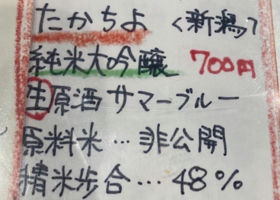 たかちよ〈新潟〉
純米大吟醸 700円
生原酒サマーブルー
原料米…非公開
精米歩合…48%